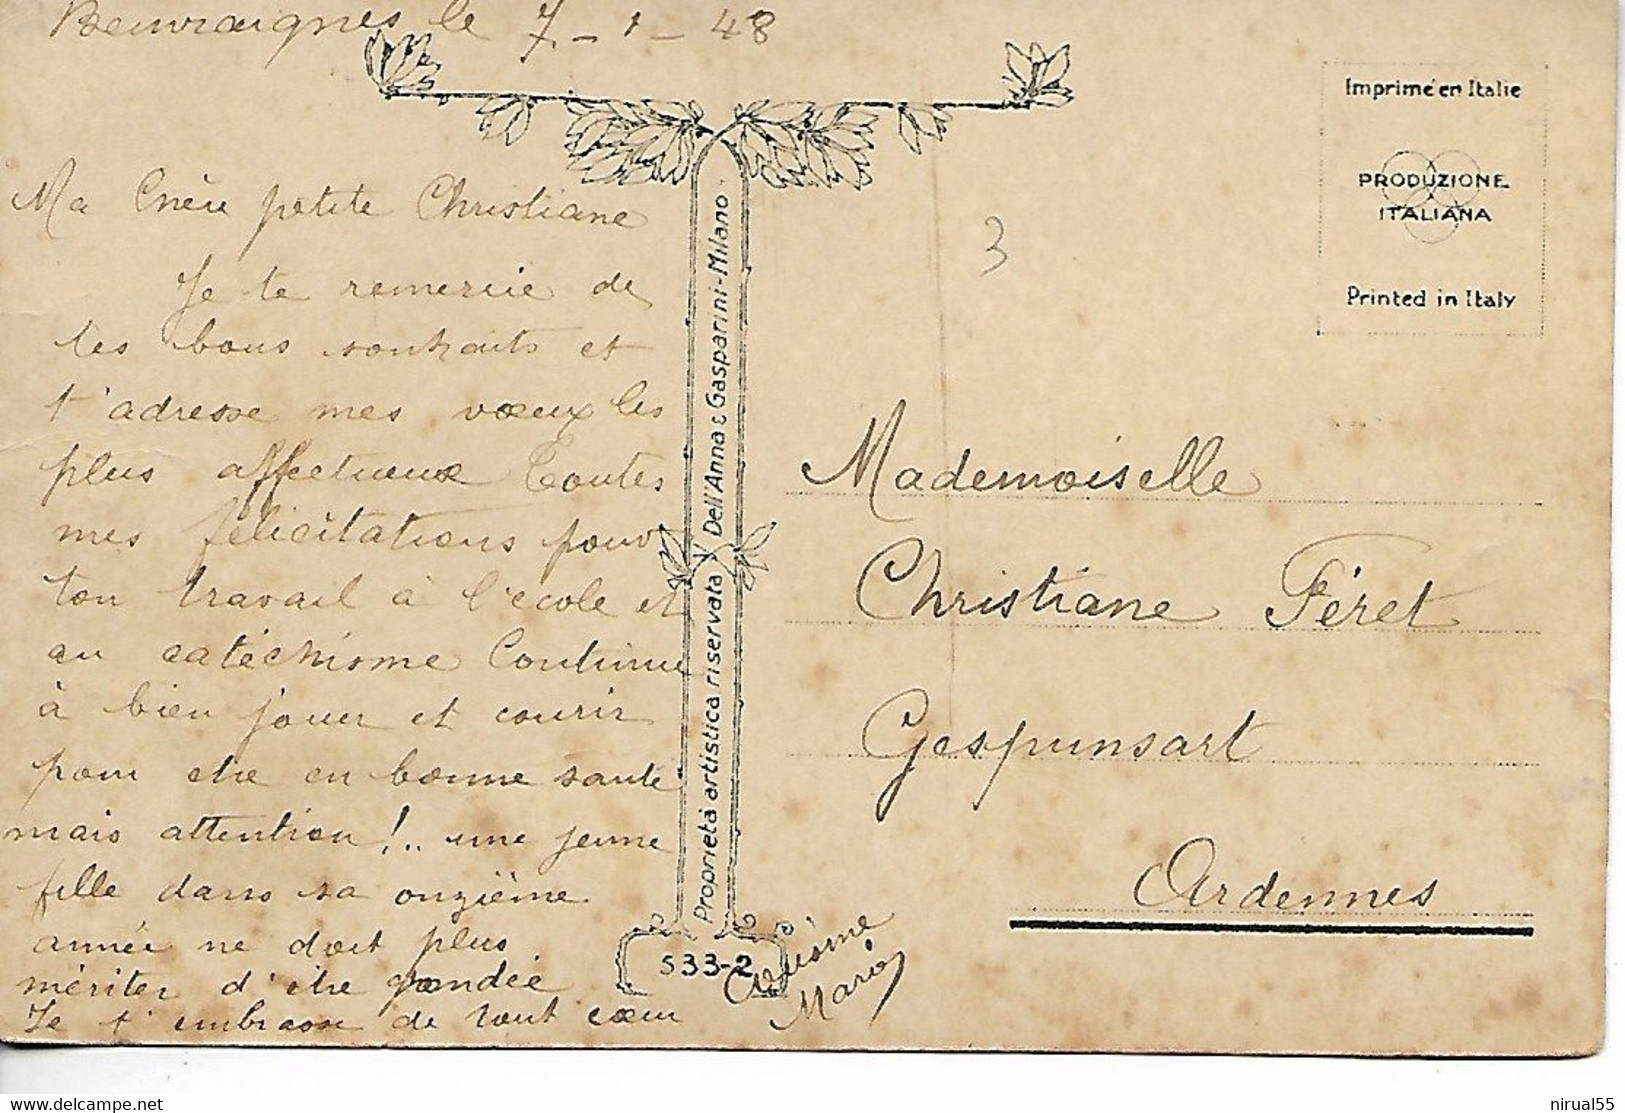 Beuvraignes le 7-1-48
Ma Chère petite Christiane
Je te remercie de
tes bons souhaits et
t'adresse mes vœux les
plus affectueux Toutes
mes félicitations pour
ton travail à l'école et
au catéchisme Continue
à bien jouer et courir
pour être en bonne santé
mais attention !.. une jeune
fille dans sa onzième
année ne doit plus
mériter d'être grondée
Je t'embrasse de tout cœur
Marie
Proprietà artistica riservata Dell'Anna & Gasparini - Milano
533-2
3
Imprimé en Italie
PRODUZIONE
ITALIANA
Printed in Italy
Mademoiselle
Christiane Féret
Gespunsart
Ardennes
delcampe.net
nirual55